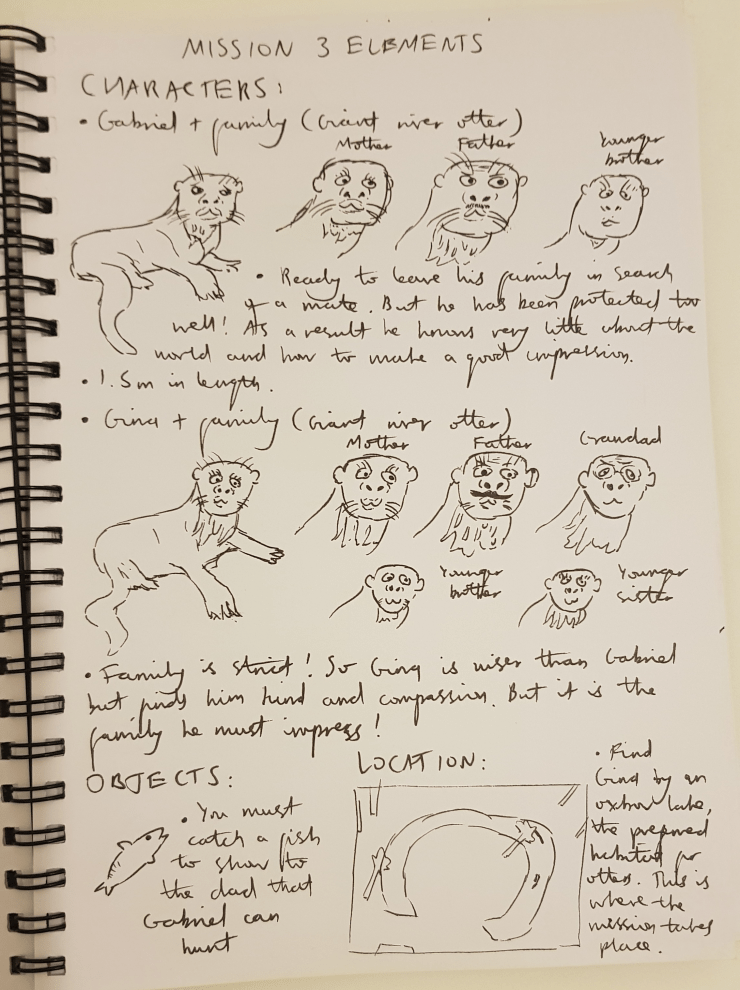 MISSION 3 ELEMENTS
CHARACTERS:
• Gabriel + family (Giant river otter)
Mother
Father
Younger
brother
• Ready to leave his family in search
of a mate. But he has been protected too
well! As a result he knows very little about the
world and how to make a good impression.
• 1.5m in length.
• Gina + family (Giant river otter)
Mother
Father
Grandad
Younger
brother
Younger
sister
• Family is strict! So Gina is wiser than Gabriel
but finds him kind and compassion. But it is the
family he must impress!
OBJECTS:
• You must
catch a fish
to show to
the dad that
Gabriel can
hunt
LOCATION:
• Find
Gina by an
oxbow lake,
the preferred
habitat for
otters. This is
where the
mission takes
place.